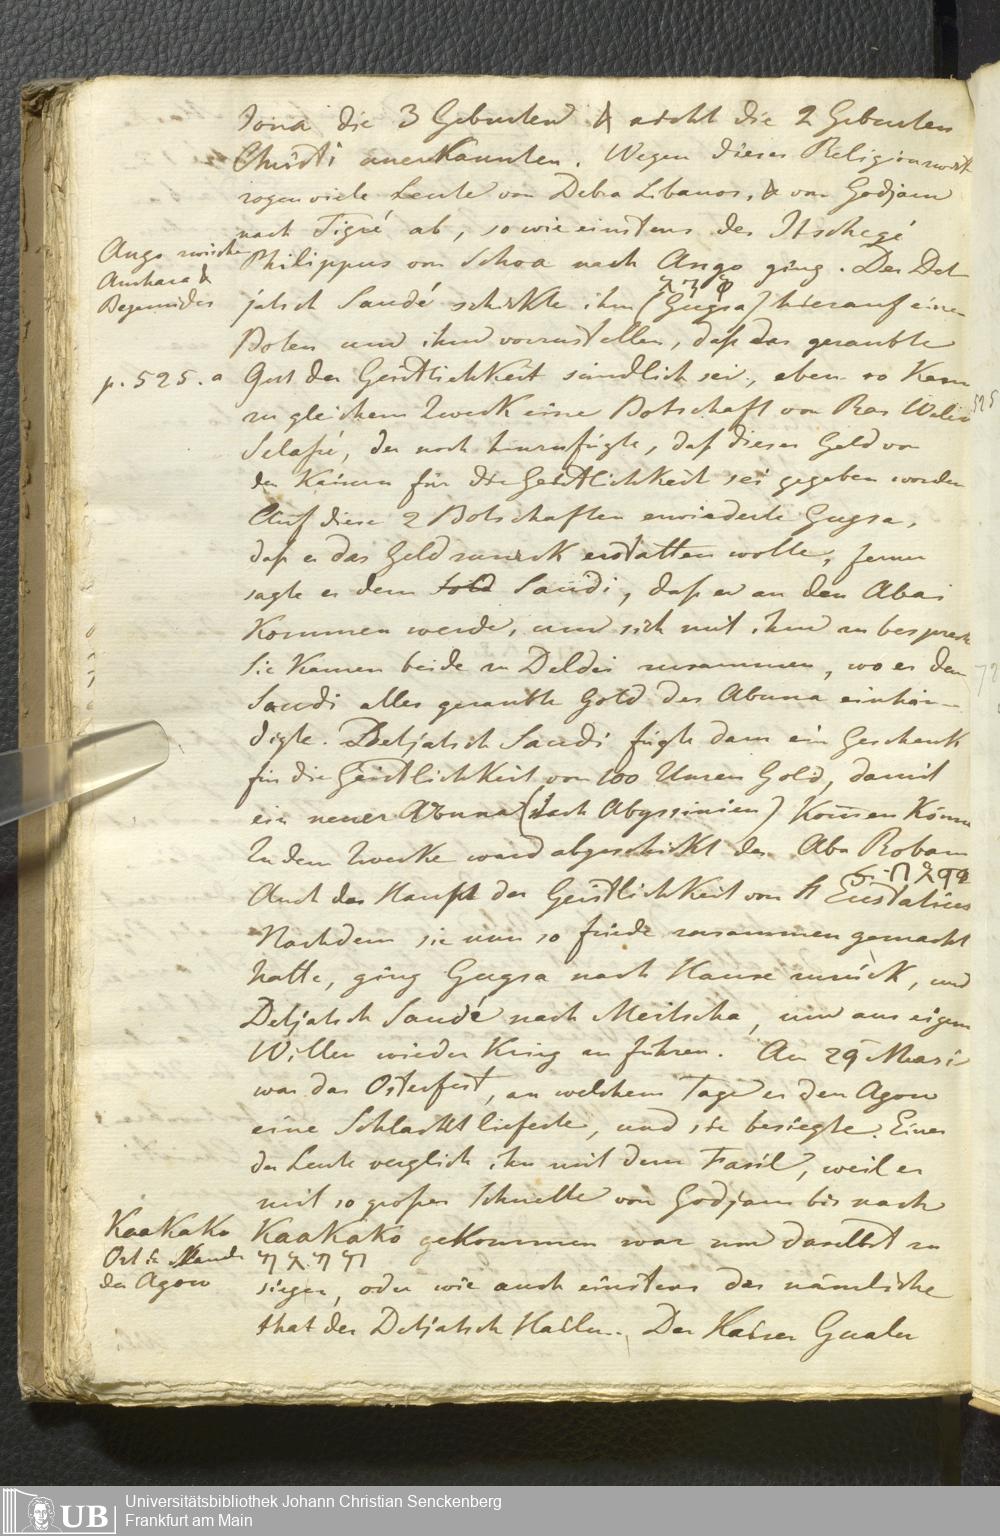 Jona die 3 Geburten & nicht die 2 Geburten
Christi anerkannten. Wegen dieser Religions
zogen viele Leute von Debra Libanos, & von Godjam
nach Tigré ab, so wie einstens der Itschegé
Ango zwischen
Amhara &
Begemider
Philippus von Schoa nach Ango ging. Der Det-
jatsch Saudé schickte ihm (Gugsa) hierauf einen
Boten um ihm vorzustellen, daß das geraubte
p. 525. a
Gut der Geistlichkeit sündlich sei, eben so kam
zu gleichem Zweck eine Botschaft von Ras Weled
Selasié, der noch hinzufügte, daß dieses Geld von
den Kaisern für die Geistlichkeit sei gegeben worden
Auf diese 2 Botschaften erwiederte Gugsa,
daß er das Geld zurück erstatten wolle, ferner
sagte er dem Saudi, daß er an den Abai
kommen werde, um sich mit ihm zu besprech
Sie kamen beide zu Deldei zusammen, wo er dem
Saudi alles geraubte Gold des Abuna einhän-
digte. Detjatsch Saudi fügte dann ein Geschenk
für die Geistlichkeit von 100 Unzen Gold, damit
ein neuer Abuna (nach Abyssinien) kommen könne
Zu dem Zwecke ward abgeschickt der Aba Robam
Auch das Haupt der Geistlichkeit von St Eustatius
Nachdem sie nun so friede zusammen gemacht
hatte, ging Gugsa nach Hause zurück, und
Detjatsch Saudé nach Meitscha, um aus eigem
Willen wieder Krieg zu führen. Am 29 Mazi
war das Osterfest, an welchem Tage er den Agow
eine Schlacht lieferte, und sie besiegte. Einer
der Leute verglich ihn mit dem Fasil, weil er
mit so großer Schnelle von Godjam bis nach
Kaakako
Ort im Lande
der Agow
Kaakako gekommen war um daselbst zu
siegen, oder wie auch einstens das nämliche
that der Detjatsch Hailu. Der Kaiser Gualu
Universitätsbibliothek Johann Christian Senckenberg
Frankfurt am Main
UB